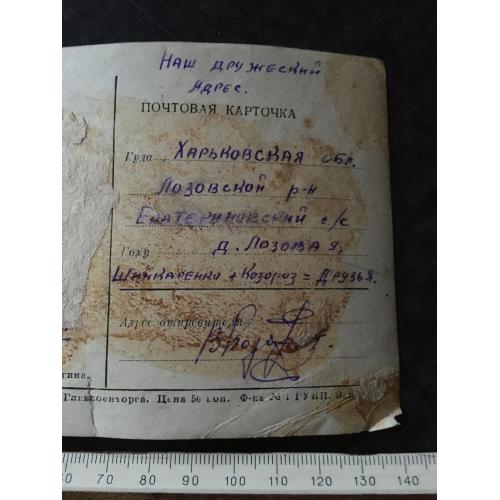 Наш дружеский
Адрес.
ПОЧТОВАЯ КАРТОЧКА
Куда Харьковская обл.
Лозовской р-н
Екатериновский с/с
Кому Д. Лозовая
Шинкаренко + Козороз = Друзья.
Адрес отправителя
тина.
Главлоенторга. Цена 50 коп. Ф-ка № 1 ГУКП.
60 70 80 90 100 110 120 130 140